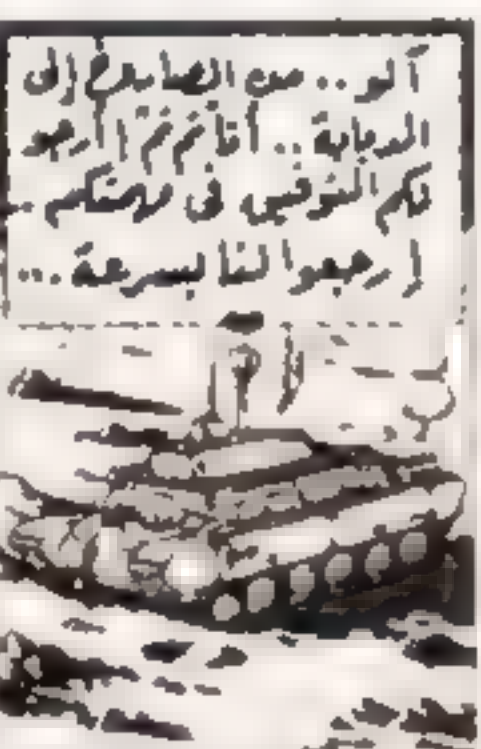 آلو .. من الصاروخ إلى
الدبابة .. أرجو
لكم التوفيق فى مهمتكم ..
إرجعوا لنا بسرعة ...